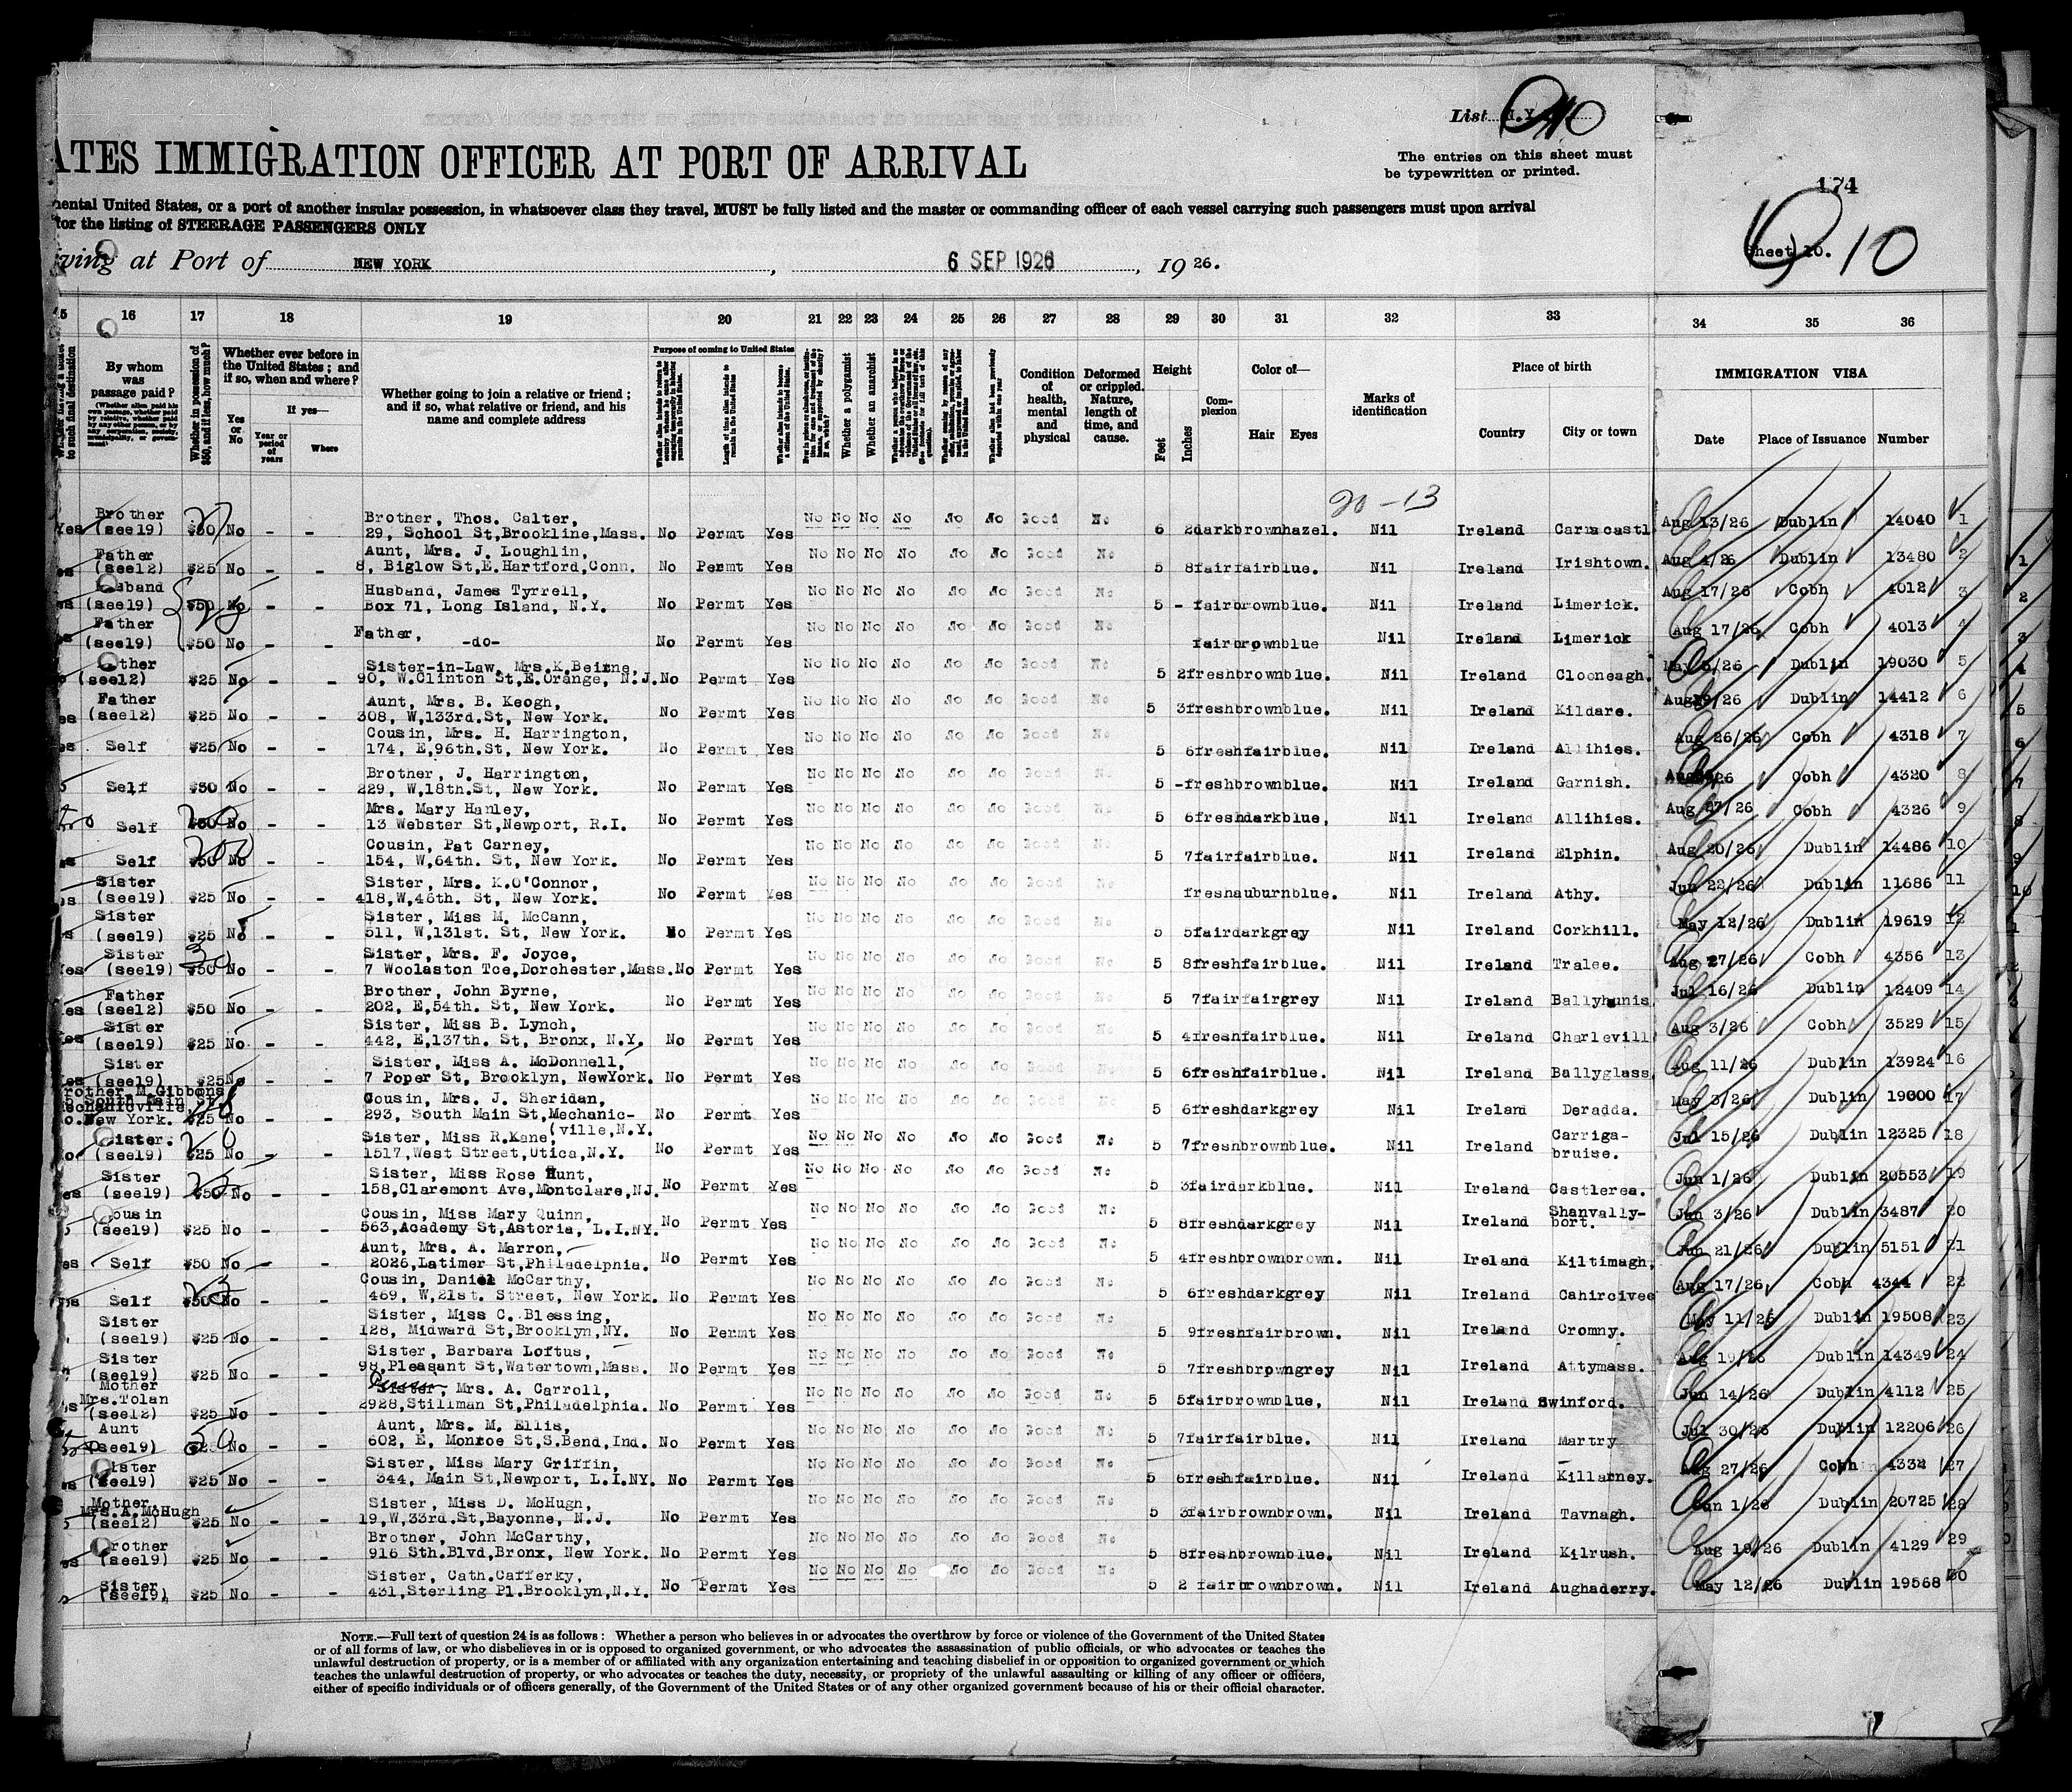 List N.Y. 10
ATES IMMIGRATION OFFICER AT PORT OF ARRIVAL
The entries on this sheet must
be typewritten or printed.
174
nental United States, or a port of another insular possession, in whatsoever class they travel, MUST be fully listed and the master or commanding officer of each vessel carrying such passengers must upon arrival
for the listing of STEERAGE PASSENGERS ONLY
Sheet 10. 10
iving at Port of NEW YORK, 6 SEP 1926, 1926.
16 17 18 19 20 21 22 23 24 25 26 27 28 29 30 31 32 33 34 35 36
By whom was passage paid?
Whether in possession of $50, and if less, how much?
Whether ever before in the United States; and if so, when and where?
Yes or No
If yes—
Year or period of years
Where
Whether going to join a relative or friend; and if so, what relative or friend, and his name and complete address
Purpose of coming to United States
Length of time alien intends to remain in the United States
Whether a polygamist
Whether an anarchist
Condition of health, mental and physical
Deformed or crippled. Nature, length of time, and cause.
Height
Feet
Inches
Complexion
Color of—
Hair Eyes
Marks of identification
Place of birth
Country
City or town
IMMIGRATION VISA
Date Place of Issuance Number
20-13
Yes Brother (see19) $50 No - - Brother, Thos. Calter, 29, School St,Brookline,Mass. No Permt Yes No No No No No No Good No 6 2 dark brown hazel. Nil Ireland Aug 13/26 Dublin 14040 1
es Father (see12) $25 No - - Aunt, Mrs. J. Loughlin, 8, Biglow St,E.Hartford,Conn. No Permt Yes No No No No No No Good No 5 8 fair fair blue. Nil Ireland Irishtown. Aug 4/26 Dublin 13480 2
es Husband (see19) $50 No - - Husband, James Tyrrell, Box 71, Long Island, N.Y. No Permt Yes No No No No No No Good No 5 - fair brown blue. Nil Ireland Limerick. Aug 17/26 Cobh 4012 3
es Father (see19) $50 No - - Father, -do- No Permt Yes No No No No No No Good No fair brown blue Nil Ireland Limerick Aug 17/26 Cobh 4013 4
(see12) $25 No - - Sister-in-Law, Mrs.K.Beirne, 90, W.Clinton St,E.Orange, N.J. No Permt Yes No No No No No No Good No 5 2 fresh brown blue. Nil Ireland Clooneagh. May 5/26 Dublin 19030 5
es Father (see12) $25 No - - Aunt, Mrs. B. Keogh, 308, W,133rd.St, New York. No Permt Yes No No No No No No Good No 5 3 fresh brown blue. Nil Ireland Kildare. Aug 19/26 Dublin 14412 6
es Self $25 No - - Cousin, Mrs. H. Harrington, 174, E,96th.St, New York. No Permt Yes No No No No No No Good No 5 6 fresh fair blue. Nil Ireland Allihies. Aug 26/26 Cobh 4318 7
Self $50 No - - Brother, J. Harrington, 229, W,18th.St, New York. No Permt Yes No No No No No No Good No 5 - fresh brown blue. Nil Ireland Garnish. Cobh 4320 8
Self $50 No - - Mrs. Mary Hanley, 13 Webster St,Newport, R.I. No Permt Yes No No No No No No Good No 5 6 fresh dark blue, Nil Ireland Allihies. Aug 27/26 Cobh 4326 9
es Self $50 No - - Cousin, Pat Carney, 154, W,64th. St, New York. No Permt Yes No No No No No No Good No 5 7 fair fair blue. Nil Ireland Elphin. Aug 20/26 Dublin 14486 10
es Sister (see19) $25 No - - Sister, Mrs. K.O'Connor, 418,W,46th. St, New York. No Permt Yes No No No No No No Good No fresh auburn blue. Nil Ireland Athy. Jun 22/26 Dublin 11686 11
s Sister (see19) $25 No - - Sister, Miss M. McCann, 511, W,131st. St, New York. No Permt Yes No No No No No No Good No 5 5 fair dark grey Nil Ireland Corkhill. May 12/26 Dublin 19619 12
Yes Sister (see19) $50 No - - Sister, Mrs. F. Joyce, 7 Woolaston Tce,Dorchester,Mass. No Permt Yes No No No No No No Good No 5 8 fresh fair blue. Nil Ireland Tralee. Aug 27/26 Cobh 4356 13
Yes Father (see12) $50 No - - Brother, John Byrne, 202, E,54th. St, New York. No Permt Yes No No No No No No Good No 5 7 fair fair grey Nil Ireland Ballyhunis Jul 16/26 Dublin 12409 14
Yes Sister (see19) $25 No - - Sister, Miss B. Lynch, 442, E,137th. St, Bronx, N.Y. No Permt Yes No No No No No No Good No 5 4 fresh fair blue. Nil Ireland Charlevill Aug 3/26 Cobh 3529 15
Yes Sister (see19) $25 No - - Sister, Miss A. McDonnell, 7 Poper St, Brooklyn, NewYork. No Permt Yes No No No No No No Good No 5 6 fresh fair blue. Nil Ireland Ballyglass Aug 11/26 Dublin 13924 16
Brother,M.Gibbons South Main St Mechanicville, New York. $25 No - - Cousin, Mrs. J. Sheridan, 293, South Main St,Mechanic-(ville,N.Y. No Permt Yes No No No No No No Good No 5 6 fresh dark grey Nil Ireland Deradda. May 3/26 Dublin 19000 17
Sister. (see19) $25 No - - Sister, Miss R.Kane, 1517,West Street,Utica,N.Y. No Permt Yes No No No No No No Good No 5 7 fresh brown blue. Nil Ireland Carriga-bruise. Jul 15/26 Dublin 12325 18
es Sister (see19) $50 No - - Sister, Miss Rose Hunt, 158,Claremont Ave,Montclare,NJ. No Permt Yes No No No No No No Good No 5 3 fair dark blue. Nil Ireland Castlerea. Jun 1/26 Dublin 20553 19
Cousin (see19) $25 No - - Cousin, Miss Mary Quinn, 563,Academy St,Astoria, L.I.NY. No Permt Yes No No No No No No Good No 5 8 fresh dark grey Nil Ireland Shanvally-bort. Jun 3/26 Dublin 3487 20
es Self $50 No - - Aunt, Mrs. A. Marron, 2026,Latimer St,Philadelphia. No Permt Yes No No No No No No Good No 5 4 fresh brown brown. Nil Ireland Kiltimagh, Jun 21/26 Dublin 5151 21
Self $50 No - - Cousin, Daniel McCarthy, 469, W,21st. Street, New York. No Permt Yes No No No No No No Good No 5 6 fresh dark grey Nil Ireland Cahircivee Aug 17/26 Cobh 4344 22
Sister (see19) $25 No - - Sister, Miss C. Blessing, 128, Midward St,Brooklyn,NY. No Permt Yes No No No No No No Good No 5 9 fresh fair brown. Nil Ireland Cromny. May 11/26 Dublin 19508 23
Sister (see19) $25 No - - Sister, Barbara Loftus, 98,Pleasant St,Watertown,Mass. No Permt Yes No No No No No No Good No 5 7 fresh brown grey Nil Ireland Attymass. Aug 19/26 Dublin 14349 24
Mother Mrs.Tolan (see12) $25 No - - Sister, Mrs. A. Carroll, 2928,Stillman St,Philadelphia. No Permt Yes No No No No No No Good No 5 5 fair brown blue, Nil Ireland Swinford. Jun 14/26 Dublin 4112 25
Aunt (see19) $25 No - - Aunt, Mrs. M. Ellis, 602, E, Monroe St,S.Bend,Ind. No Permt Yes No No No No No No Good No 5 7 fair fair blue. Nil Ireland Martry Jul 30/26 Dublin 12206 26
Sister (see19) $25 No - - Sister, Miss Mary Griffin, 344, Main St,Newport, L.I.NY. No Permt Yes No No No No No No Good No 5 6 fresh fair blue. Nil Ireland Killarney. Aug 27/26 Cobh 4332 27
Mother, Mrs.A.McHugh (see12) $25 No - - Sister, Miss D. McHugh, 19,W,33rd.St,Bayonne, N.J. No Permt Yes No No No No No No Good No 5 3 fair brown brown. Nil Ireland Tavnagh. Jun 1/26 Dublin 20725 28
es Brother (see19) $25 No - - Brother, John McCarthy, 916 Sth.Blvd,Bronx, New York. No Permt Yes No No No No No No Good No 5 8 fresh brown blue. Nil Ireland Kilrush. Aug 19/26 Dublin 4129 29
Sister (see19) $25 No - - Sister, Cath.Cafferky, 431,Sterling Pl.Brooklyn,N.Y. No Permt Yes No No No No No No Good No 5 2 fair brown brown. Nil Ireland Aughaderry. May 12/26 Dublin 19568 30
NOTE.—Full text of question 24 is as follows: Whether a person who believes in or advocates the overthrow by force or violence of the Government of the United States
or of all forms of law, or who disbelieves in or is opposed to organized government, or who advocates the assassination of public officials, or who advocates or teaches the
unlawful destruction of property, or is a member of or affiliated with any organization entertaining and teaching disbelief in or opposition to organized government or which
teaches the unlawful destruction of property, or who advocates or teaches the duty, necessity, or propriety of the unlawful assaulting or killing of any officer or officers,
either of specific individuals or of officers generally, of the Government of the United States or of any other organized government because of his or their official character.